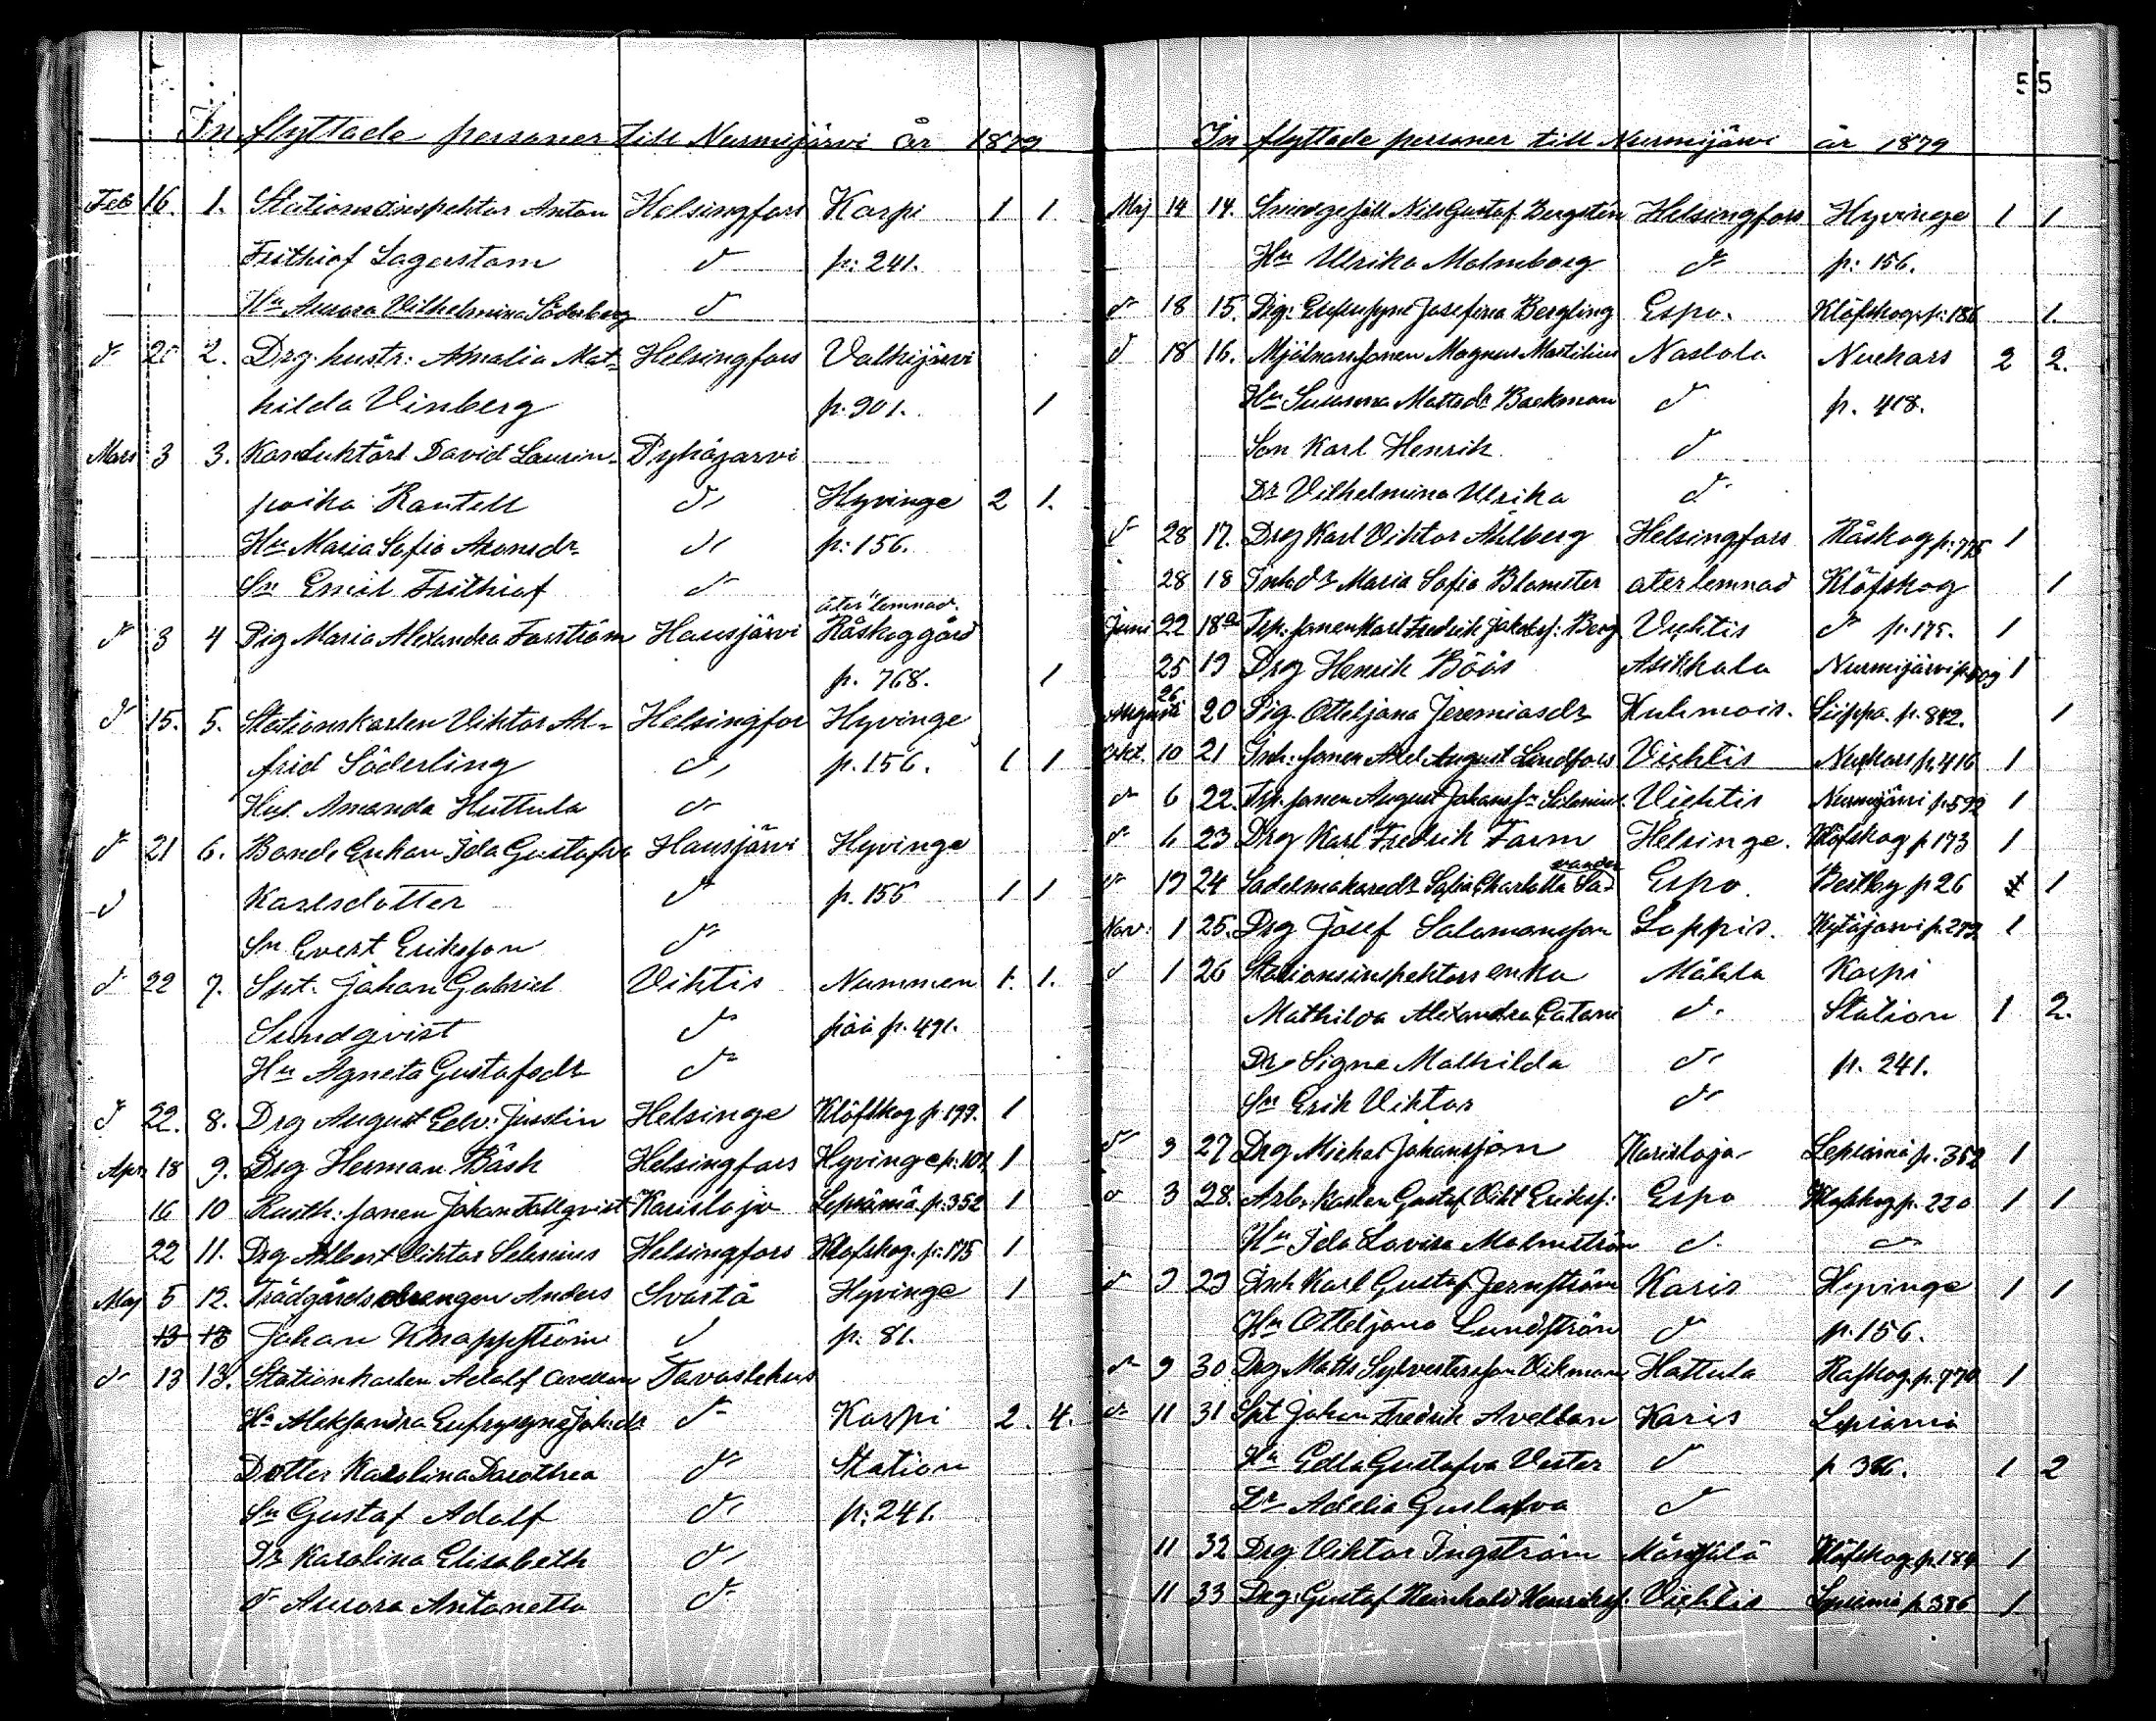 55
In flyttade personer till Nurmijärvi år 1879
Feb 16. 1. Stationsinspektor Anton Helsingfors Karpi 1 1
Frithiof Lagerstam d:o p: 241.
Hu Aurora Vilhelmina Söderberg d:o
d:o 2. Drg. hustr: Amalia Mat- Helsingfors Valkijärvi
hilda Vinberg p. 901. 1
Mars 3 3. Konduktörl David Laurin- Pyhäjarvi
poika Rantell d:o Hyvinge 2 1.
Hu Maria Sofia Aronsdr d:o p: 156.
Sn Emil Frithiof d:o
åter lemnad.
d:o 3 4 Pig Maria Alexandra Forström Hausjärvi Råskog gård
p. 768. 1
d:o 15. 5. Stationskarlen Viktor Al- Helsingfor Hyvinge
frid Söderling d:o p. 156. 1 1
Hus. Amanda Huttula d:o
d:o 21 6. Bonde Enkan Ida Gustafva Hausjärvi Hyvinge
d:o Karlsdotter d:o p. 155 1 1
Sn Evert Eriksson d:o
d:o 22 7. Spt. Johan Gabriel Vihtis Nummen 1. 1.
Sundqvist d:o pää p. 491.
Hu Agneta Gustafsdr d:o
d:o 22. 8. Drg August Edv: Jusslin Helsinge Klöfskog p. 199. 1
Apr 18 9. Drg Herman Bäck Helsingfors Hyvinge p: 101 1
16 10 Rusth: sonen Johan Fallqvist Karislojo Lepsämä p. 352 1
22 11. Drg Albert Viktor Selenius Helsingfors Klofskog. p: 175 1
Maj 5 12. Trädgårdsdrengen Anders Svartå Hyvinge 1
13 13 Johan Knappström d:o p: 81.
d:o 13 13. Stationkarlen Adolf Avellan Tavastehus
Hu Aleksandra Eufrosyne Joh:dr d:o Karpi 2. 4.
Dotter Karolina Dorothea d:o Station
Sn Gustaf Adolf d:o p: 241.
Dr Karolina Elisabeth d:o
d:o Aurora Antonetta d:o
In flyttade personer till Nurmijärvi år 1879
Maj 14 14. Smedgesäll Nils Gustaf Bergsten Helsingfors Hyvinge 1 1
Hu Ulrika Malmberg d:o p: 156.
d:o 18 15. Pig: Eufrosyne Josefina Bergling Espo. Klöfskog p: 186 1.
d:o 18 16. Mjölnarsonen Magnus Martilius Nastola Nuckars 2 2.
Hu Susanna Mattsdr Backman d:o p. 418.
Son Karl Henrik d:o
Dr Vilhelmina Ulrika d:o
d:o 28 17. Drg Karl Viktor Ahlberg Helsingfors Råskog p. 775 1
28 18 Inh:dr Maria Sofia Blomster aterlemnad Klöfskog 1
Juni 22 18a Trp: sonen Karl Fredrik Jakobsf: Berg Vichtis d:o p. 175. 1
25 19 Drg Henrik Böös Asikkala Nurmijärvi p. 609 1
Augusti 26 20 Pig. Otteljana Jeremiasdr Kuhmois. Siippo. p. 842. 1
Oct. 10 21 Inh: sonen Axel August Lindfors Vichtis Nuckars p. 416 1
d:o 6 22. Trp. sonen August Johansfn Vichtis Nurmijärvi p. 592 1
d:o 6 23 Drg Karl Fredrik Farm Helsinge. Klöfskog p 173 1
d:o 19 24 Sadelmakaredr Sofia Charlotta Savander Espo. Bertby p 26 1
Nov: 1 25. Drg Josef Salomonsson Loppis. Kytäjärvi p. 279. 1
d:o 1 26 Stationsinspektors enka Mäkla Karpi
Mathilda Alexandra Catani d:o Station 1 2.
Dr Signe Mathilda d:o p. 241.
Sn Erik Viktor d:o
d:o 3 27 Drg Mickel Johansson Karisloja Lepsämä p. 352 1
d:o 3 28. Arb. karlen Gustaf Vikt Eriksf: Espo Klofskog p. 220 1 1
Hu Ida Lovisa Malmström d:o d:o
d:o 9 29 Inh Karl Gustaf Jernström Karis Hyvinge 1 1
Hu Otteljana Lundström d:o p. 156.
d:o 9 30 Drg Matts Sylvestersson Vikman Hattula Raskog. p. 770 1
d:o 11 31 Spt Johan Fredrik Avellan Karis Lepsämä
Hu Edla Gustafva Vester d:o p 386. 1 2
Dr Adelia Gustafva d:o
11 32 Drg Viktor Ingström Mäntsälä Klöfskog. p. 184 1
11 33 Drg. Gustaf Reinhold Henriksf. Vichtis Lepsämä p. 386 1